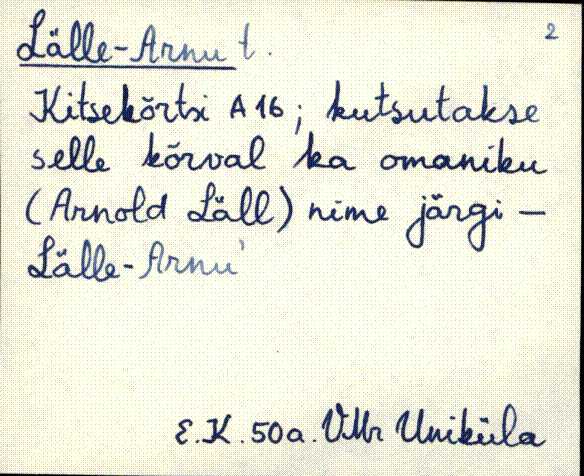 Lälle-Arnu t. 2
Kitsekõrtsi A 16; kutsutakse
selle kõrval ka omaniku
(Arnold Läll) nime järgi –
Lälle-Arnu'
E.K. 50a. VMr Uniküla